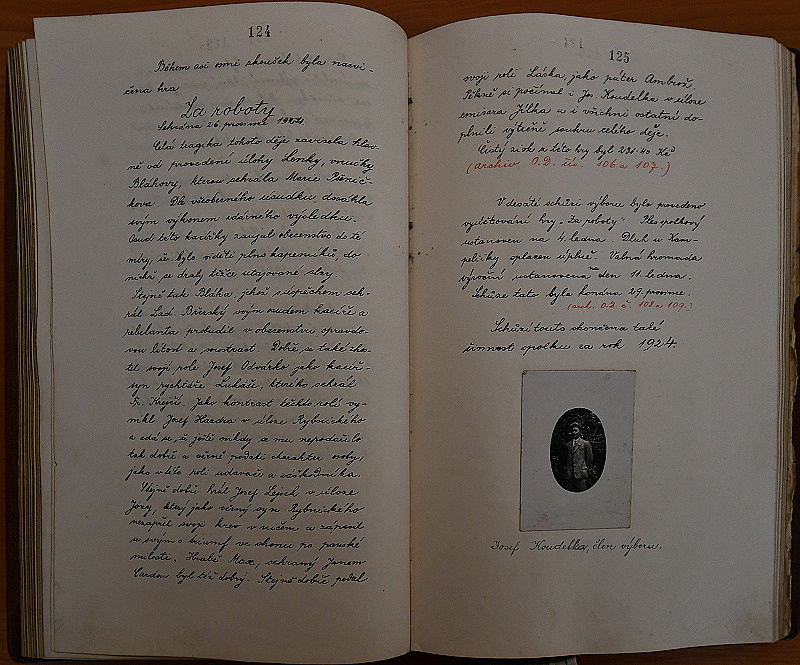 124
Během asi osmi zkoušek byla nacvi-
čena hra
Za roboty
Sehrána 26. prosince 1924.
Celá tragika tohoto děje závisela hlav-
ně od provedení úlohy Lenky, vnučky
Bláhovy, kterou sehrála Marie Pšenič-
kova. Dle všeobecného úsudku dosáhla
svým výkonem zdárného výsledku.
Osud této kacířky zaujal obecenstvo do té
míry, že bylo viděti plno kapesníků, do
nichž se draly těžce utajované slzy.
Stejně tak Bláha, jehož s úspěchem seh-
rál Lad. Březský svým osudem kacíře a
rebelanta probudil v obecenstvu opravdo-
vou lítost a soustrast. Dobře se také zho-
stil svojí role Josef Odvárko jako kacíř-
syn rychtáře Lukáše, kterého sehrál
Fr. Krejčí. Jako kontrast těchto rolí vy-
nikl Josef Hazdra v úloze Rybnického
a zdá se, že ještě nikdy se mu nepodařilo
tak dobře a věrně podati charakter osoby,
jako v této roli udavače a záškodníka.
Stejně dobře hrál Josef Lejsek v úloze
Józy, který jako věrný syn Rybnického
nezapřel svoji krev v ničem a zápasil
o svým o triumf ve skonu po panské
milosti. Hrabě Max, sehraný Janem
Cardou byl též dobrý. Stejně dobře podal
125
svoji roli Láska, jako páter Ambrož.
Pěkně si počínal i Jos. Koudelka v úloze
emisara Jílka a i všichni ostatní do-
plnili výtečně souhru celého děje.
Čistý zisk z této hry byl 231·40 Kč
(archiv O.D. čís. 106 a 107.)
V desáté schůzi výboru bylo provedeno
vyúčtování hry „Za roboty“. Ples spolkový
ustanoven na 4. ledna. Dluh u Kam-
peličky splacen úplně. Valná hromada
výroční ustanovena na den 11. ledna.
Schůze tato byla konána 29. prosince.
(arch. O.D. č. 108 a 109.)
Schůzí touto skončena také
činnost spolku za rok 1924.
Josef Koudelka, člen výboru.